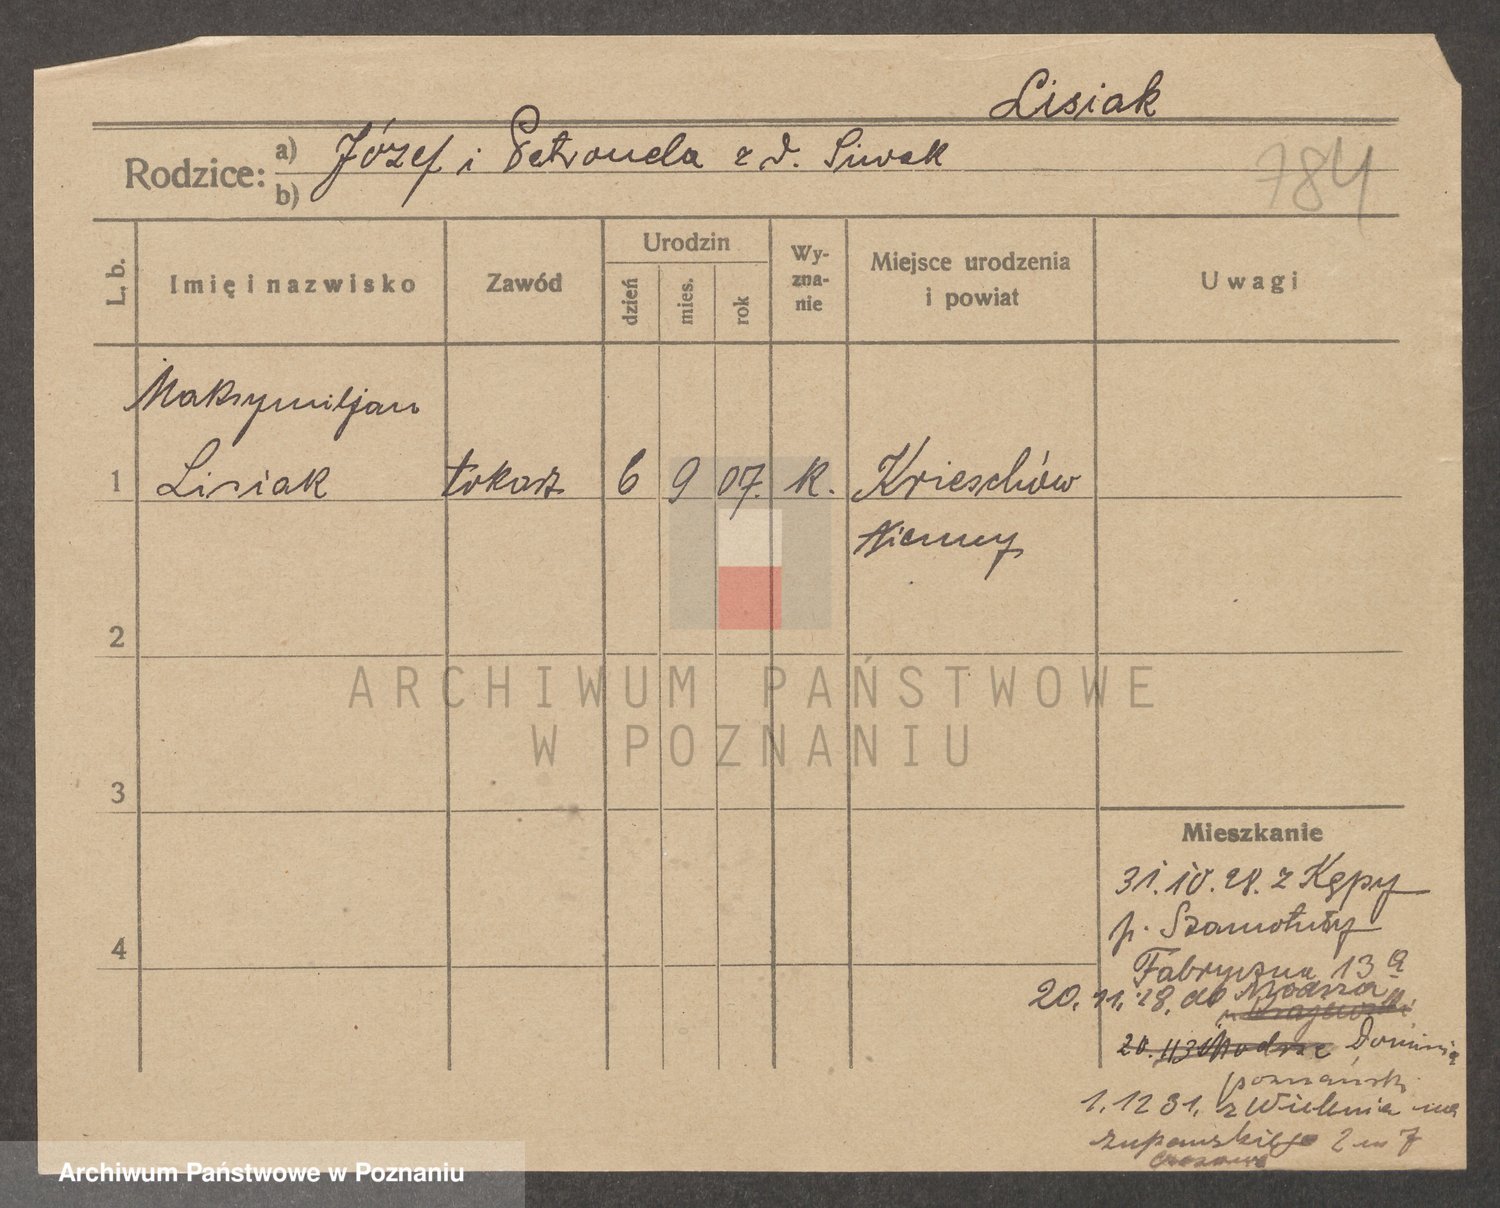 Lisiak
Rodzice: a) Józef i Petronela z d. Siwak
b)
784
L. b.
Imię i nazwisko
Zawód
Urodzin
dzień
mies.
rok
Wy-
zna-
nie
Miejsce urodzenia
i powiat
Uwagi
Maksymiljan
1 Lisiak tokarz 6 9 07. k. Krieschów
Niemcy
2
ARCHIWUM PAŃSTWOWE
W POZNANIU
3
Mieszkanie
31.10.28. z Kępy
p. Szamotuły
4
Fabryczna 13a
20.11.28. do Modrza
20.11 30 Modrze Domin
poznański
1.12 31. z Wielenia na
Żupańskiego 2 m 7
Archiwum Państwowe w Poznaniu